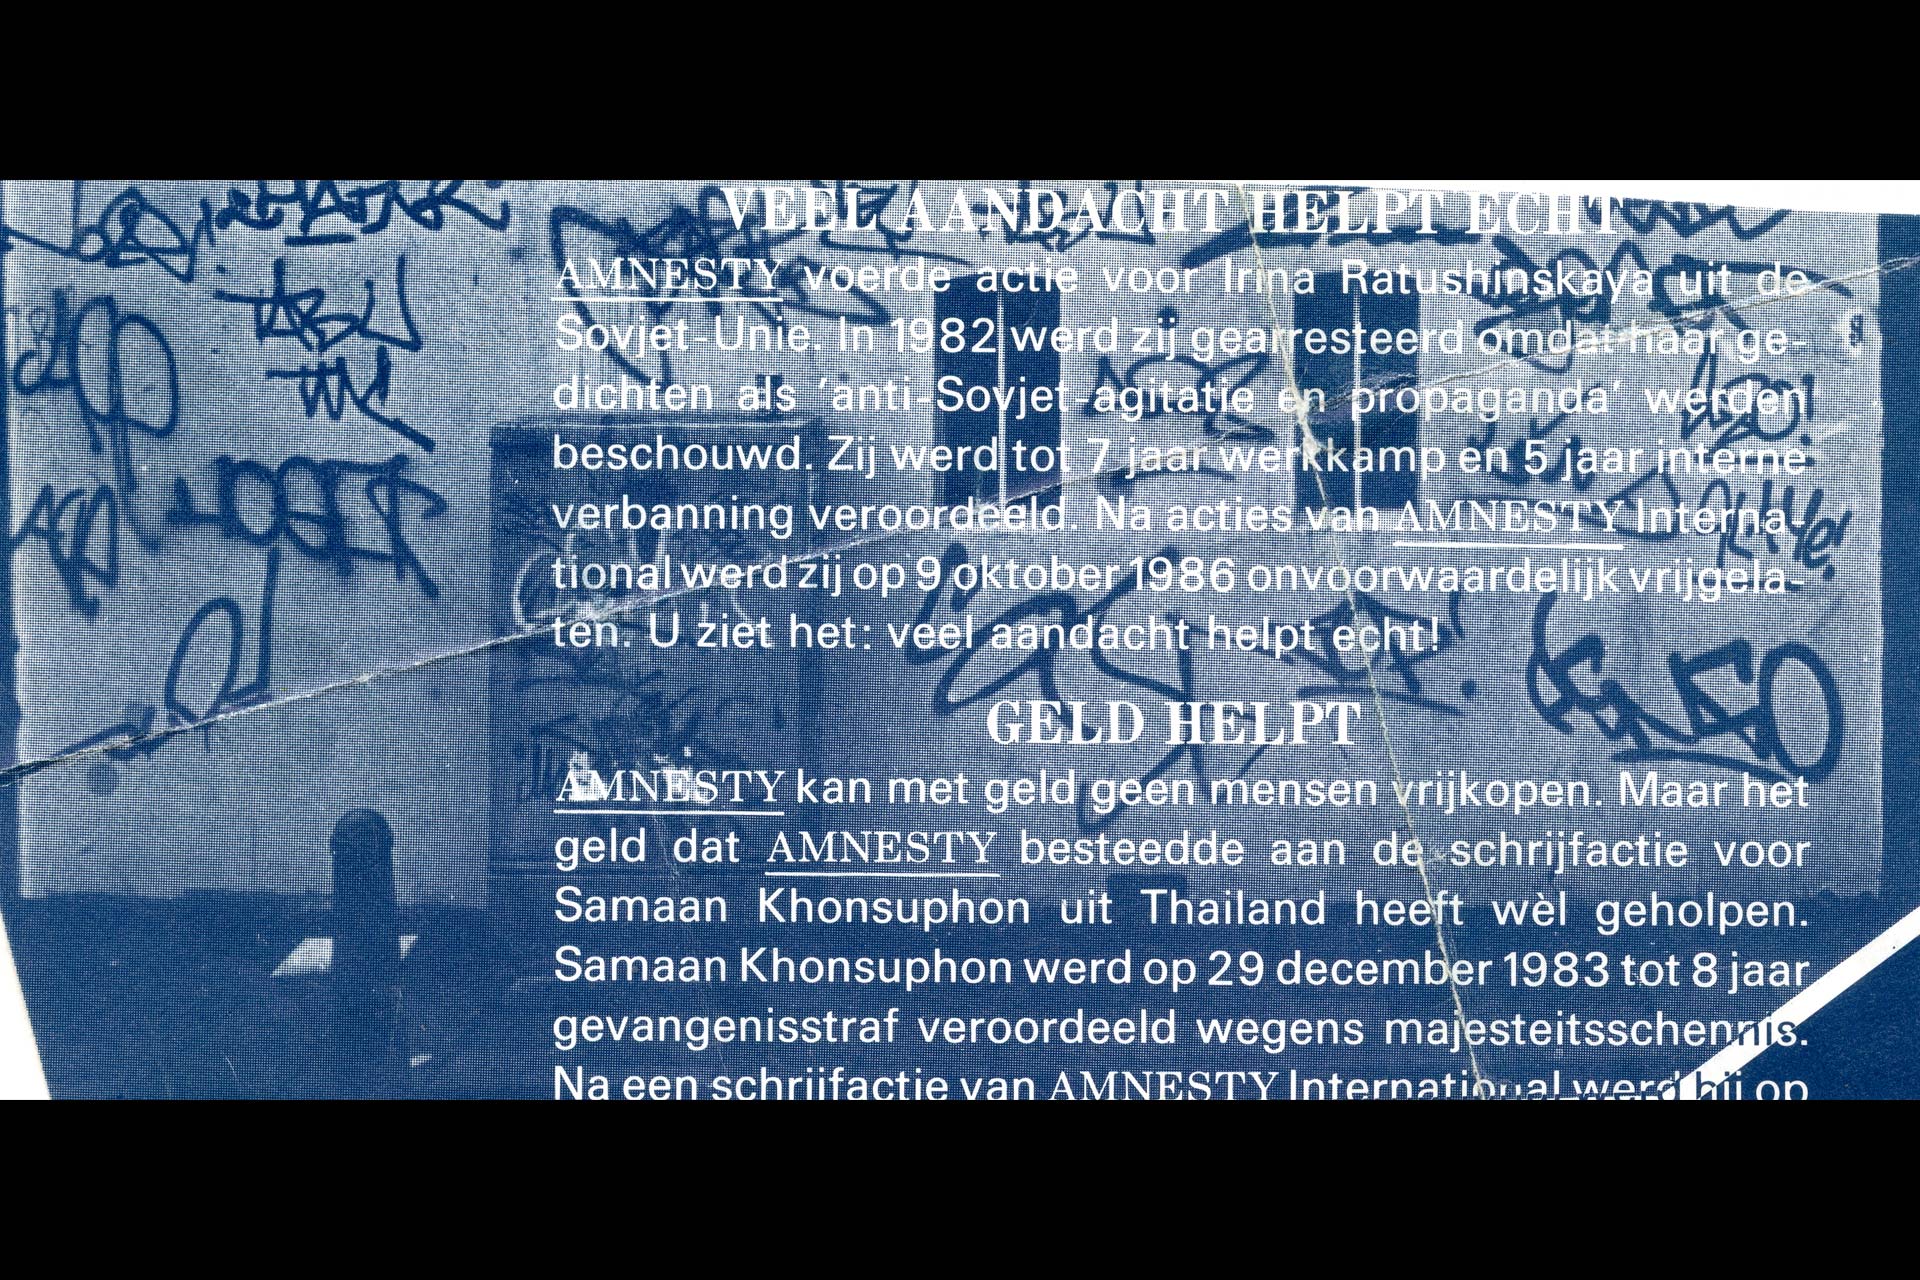 VEEL AANDACHT HELPT ECHT
AMNESTY voerde actie voor Irina Ratushinskaya uit de
Sovjet-Unie. In 1982 werd zij gearresteerd omdat haar ge-
dichten als 'anti-Sovjet-agitatie en propaganda' werden
beschouwd. Zij werd tot 7 jaar werkkamp en 5 jaar interne
verbanning veroordeeld. Na acties van AMNESTY Interna-
tional werd zij op 9 oktober 1986 onvoorwaardelijk vrijgela-
ten. U ziet het: veel aandacht helpt echt!
GELD HELPT
AMNESTY kan met geld geen mensen vrijkopen. Maar het
geld dat AMNESTY besteedde aan de schrijfactie voor
Samaan Khonsuphon uit Thailand heeft wèl geholpen.
Samaan Khonsuphon werd op 29 december 1983 tot 8 jaar
gevangenisstraf veroordeeld wegens majesteitsschennis.
Na een schrijfactie van AMNESTY International werd hij op
TABU